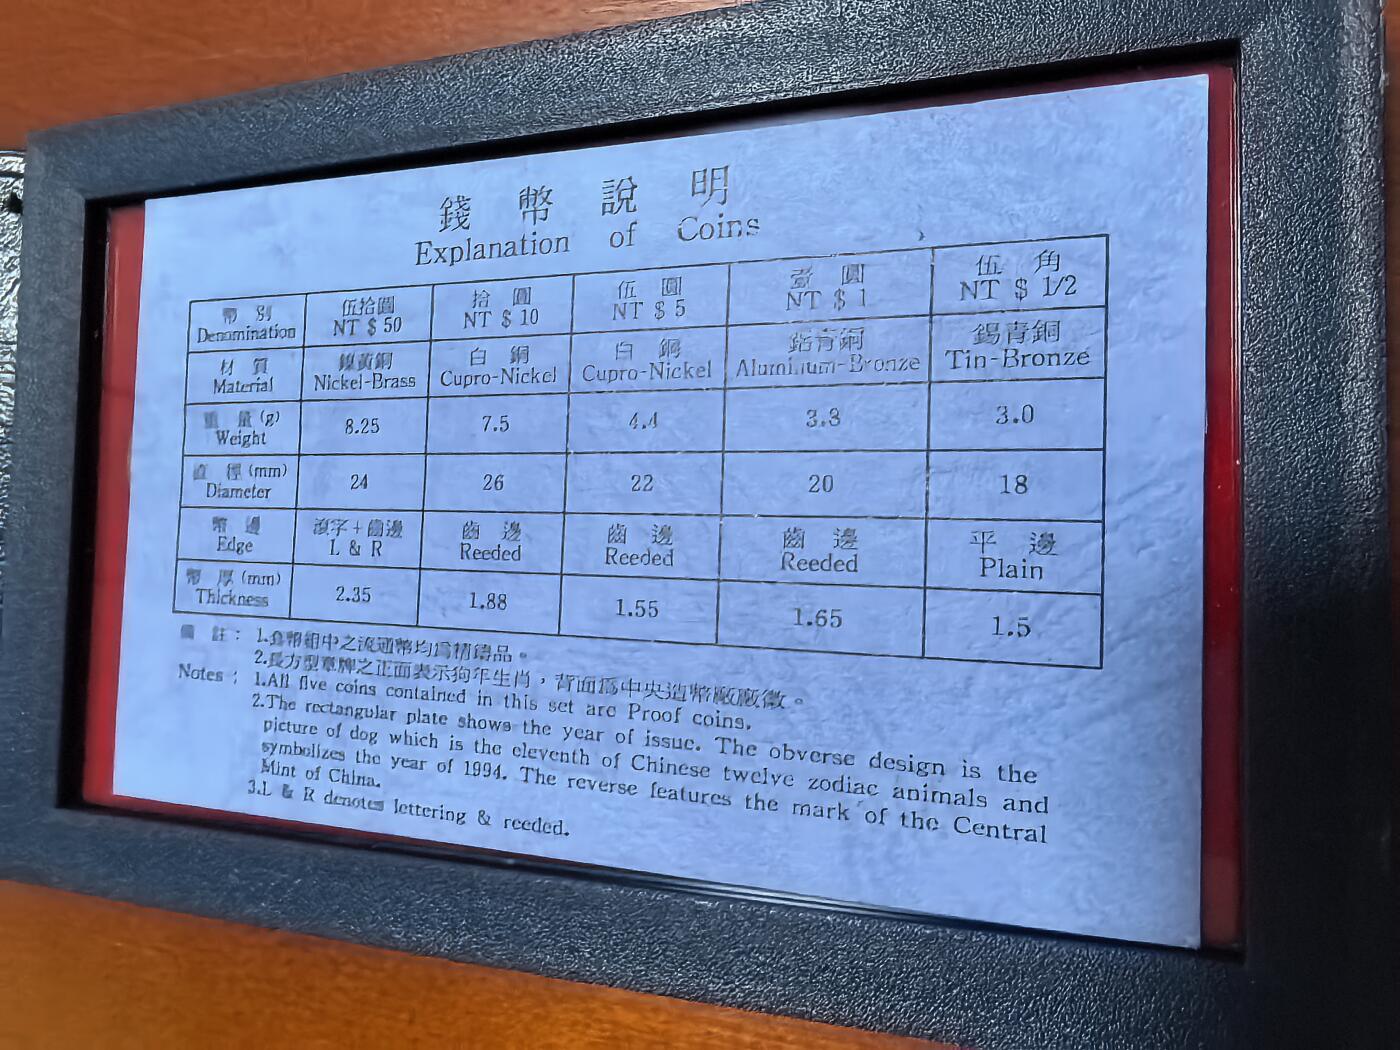 錢幣說明
Explanation of Coins
幣別 伍拾圓 拾圓 伍圓 壹圓 伍角
Denomination NT $ 50 NT $ 10 NT $ 5 NT $ 1 NT $ 1/2
材質 鎳黃銅 白銅 白銅 鋁青銅 錫青銅
Material Nickel-Brass Cupro-Nickel Cupro-Nickel Aluminum-Bronze Tin-Bronze
重量(g) 8.25 7.5 4.4 3.8 3.0
Weight
直徑(mm) 24 26 22 20 18
Diameter
幣邊 滾字+齒邊 齒邊 齒邊 齒邊 平邊
Edge L & R Reeded Reeded Reeded Plain
幣厚(mm) 2.35 1.88 1.55 1.65 1.5
Thickness
備註：1.套幣組中之流通幣均爲精鑄品。
2.長方型章牌之正面表示狗年生肖，背面爲中央造幣廠廠徽。
Notes : 1.All five coins contained in this set are Proof coins.
2.The rectangular plate shows the year of issue. The obverse design is the
picture of dog which is the eleventh of Chinese twelve zodiac animals and
symbolizes the year of 1994. The reverse features the mark of the Central
Mint of China.
3.L & R denotes lettering & reeded.